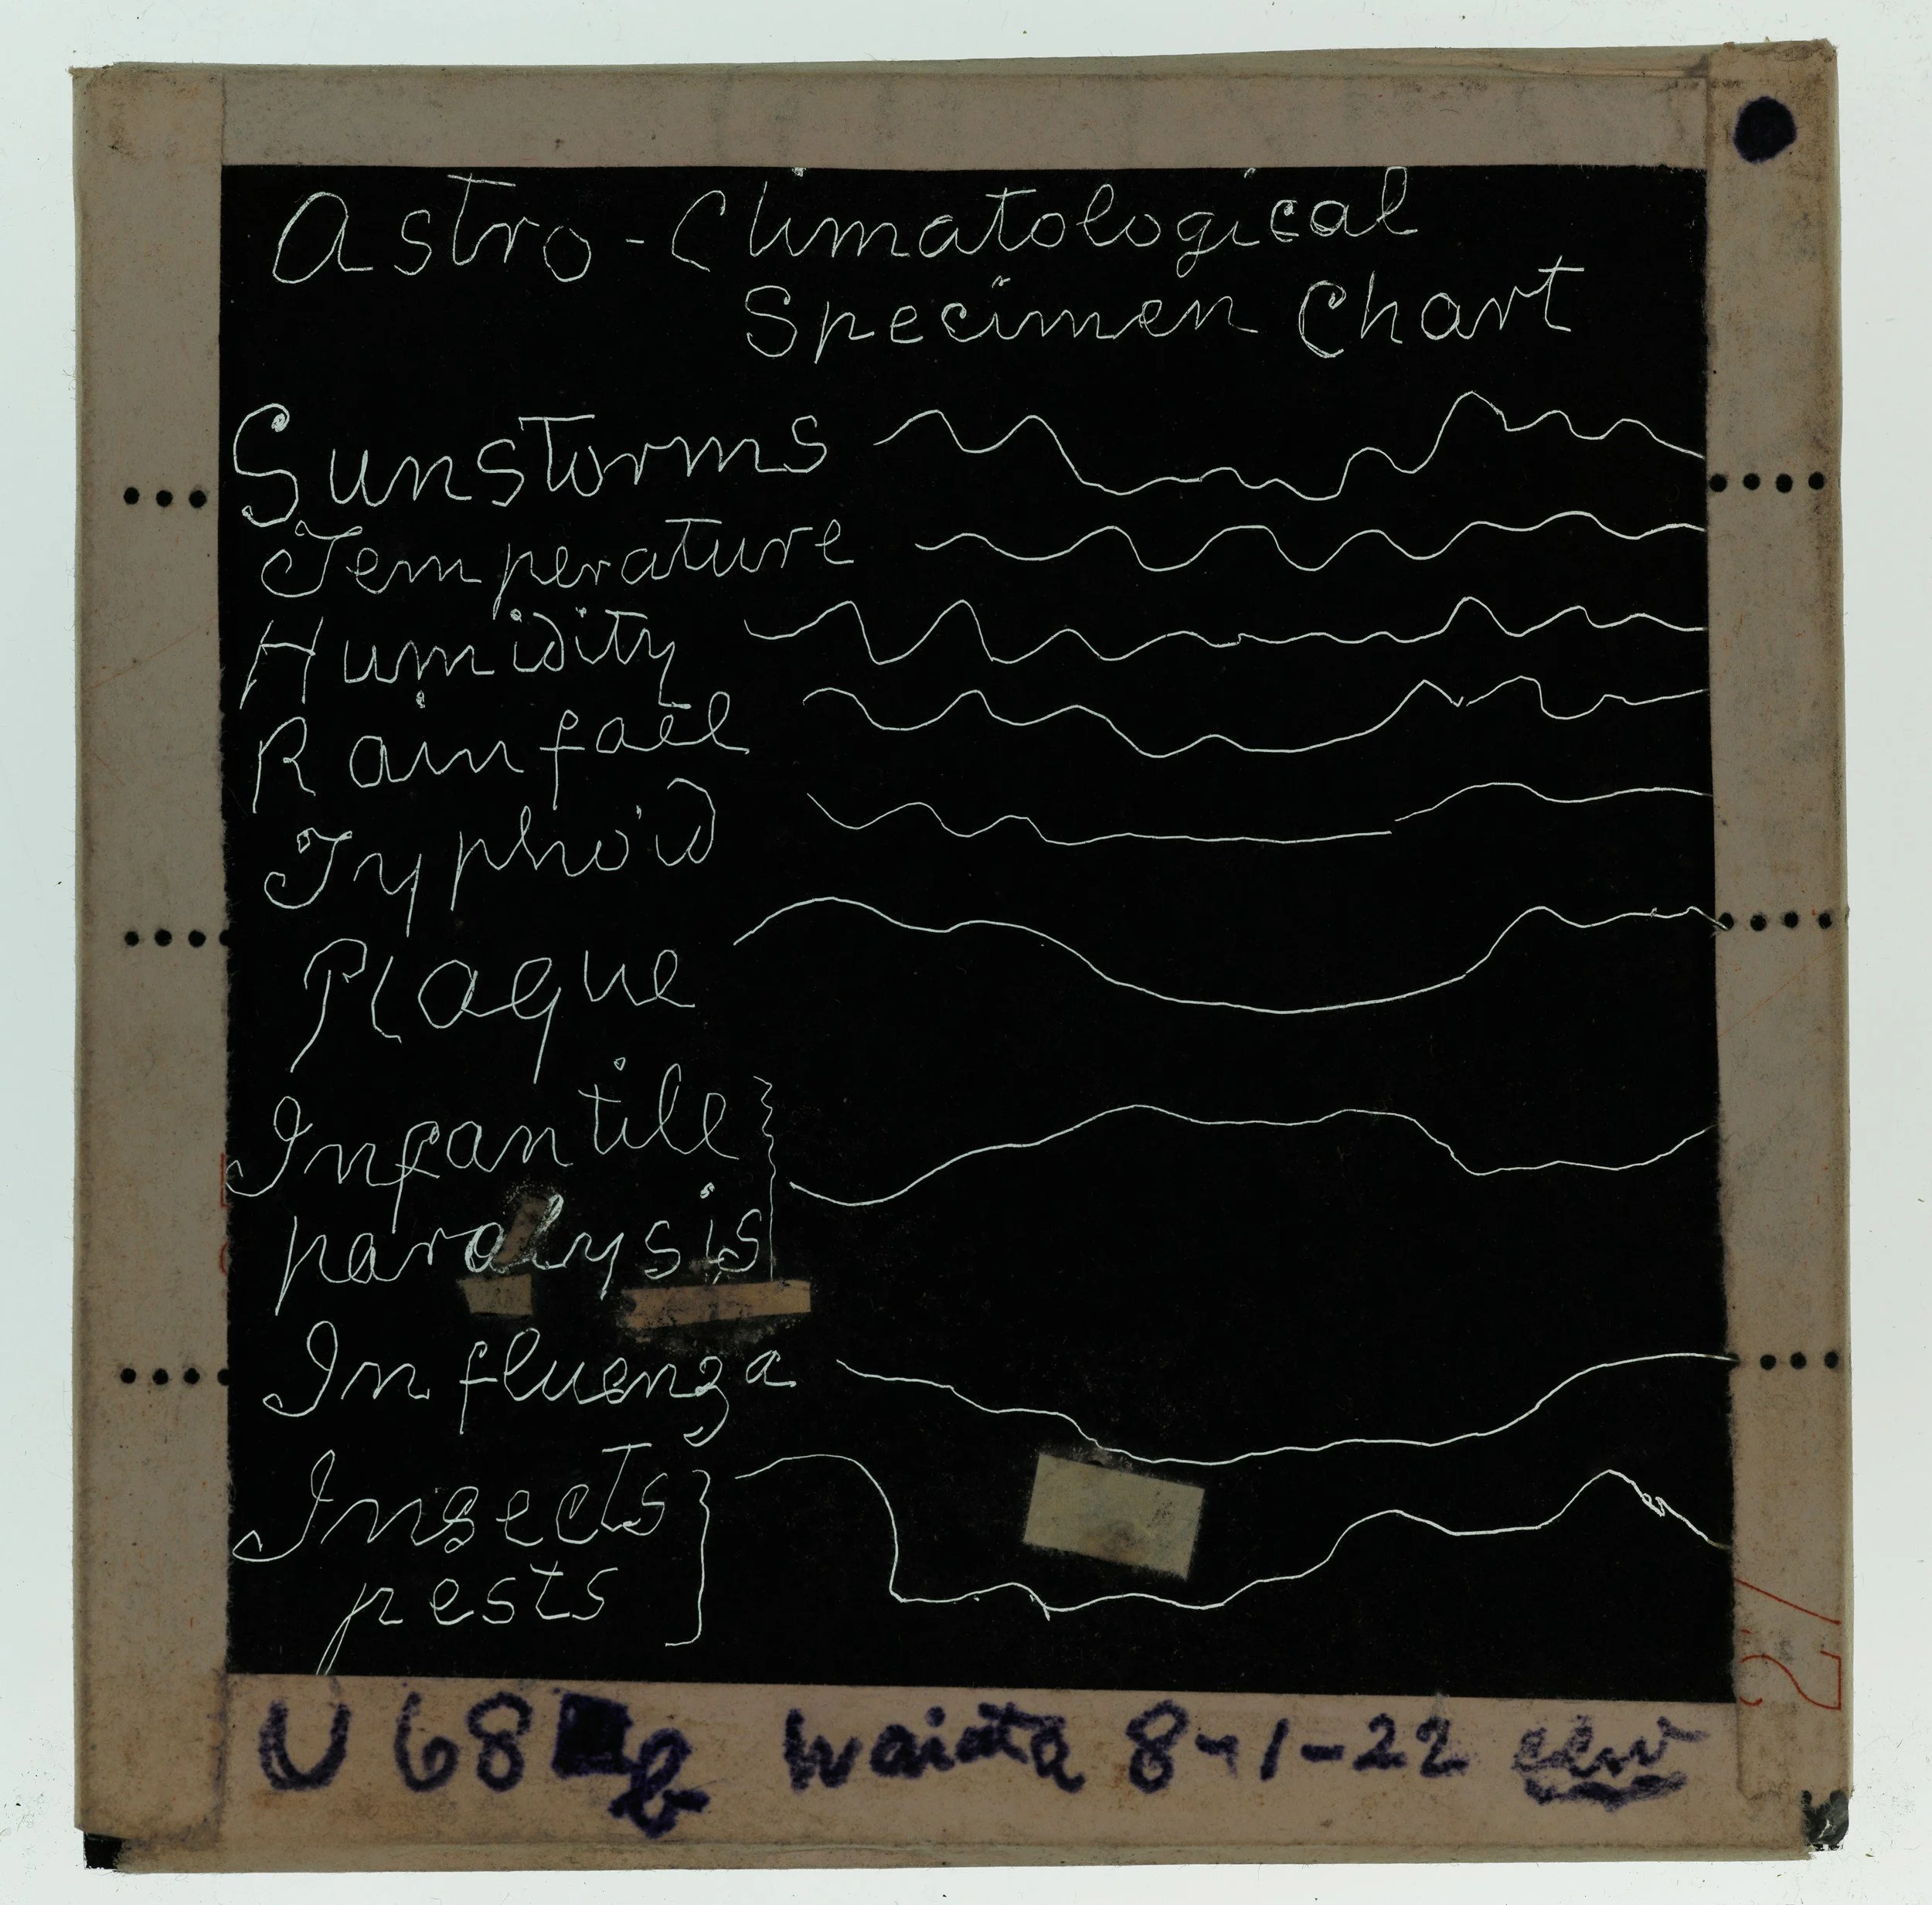 Astro-Climatological
Specimen Chart
Sunstorms
Temperature
Humidity
Rainfall
Typhoid
Plaque
Infantile
paralysis
Influenza
Insects
pests
U 68 b Waiata 8-1-22
27